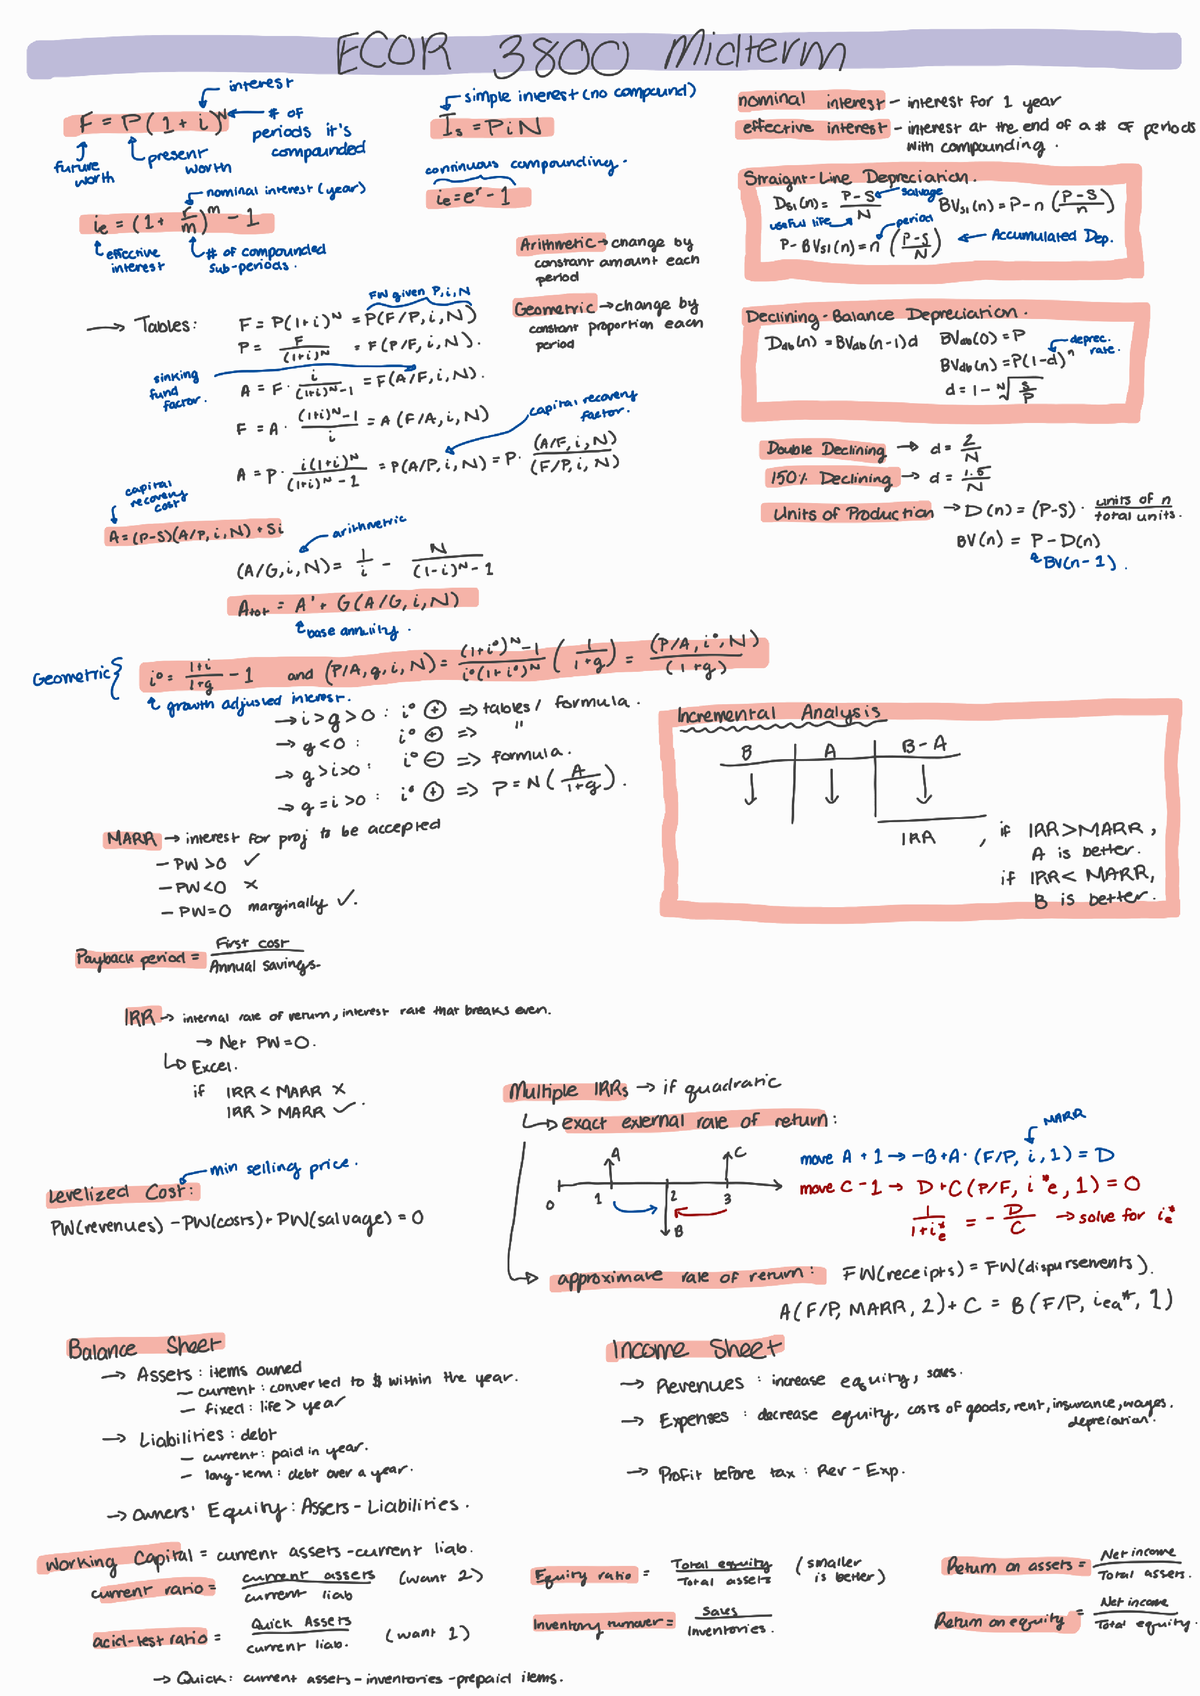 ECOR 3800 Midterm
interest
F = P(1 + i)^N
# of periods it's compounded
future worth
present worth
nominal interest (year)
ie = (1 + r/m)^m - 1
effective interest
# of compounded sub-periods.
simple interest (no compound)
Is = PiN
continuous compounding.
ie = e^r - 1
nominal interest - interest for 1 year
effective interest - interest at the end of a # of periods
with compounding.
Straight-Line Depreciation.
Dsl(n) = P-S/N
salvage
useful life
BVsl(n) = P-n (P-S/n)
period
P - BVsl(n) = n (P-S/N)
← Accumulated Dep.
Arithmetic → change by
constant amount each
period
Geometric → change by
constant proportion each
period
FW given P, i, N
→ Tables:
F = P(1+i)^N = P(F/P, i, N)
P = F/(1+i)^N = F(P/F, i, N).
sinking fund factor.
A = F · i/(1+i)^N-1 = F(A/F, i, N).
F = A · (1+i)^N-1/i = A(F/A, i, N)
capital recovery factor.
A = P · i(1+i)^N/(1+i)^N-1 = P(A/P, i, N) = P · (A/F, i, N)/(F/P, i, N)
capital recovery cost
A = (P-S)(A/P, i, N) + Si
arithmetric
(A/G, i, N) = 1/i - N/(1-i)^N-1
Atot = A' + G(A/G, i, N)
base annuity.
Declining-Balance Depreciation.
Ddb(n) = BVdb(n-1)d
BVdb(0) = P
BVdb(n) = P(1-d)^n
deprec. rate.
d = 1 - ᴺ√S/P
Double Declining → d = 2/N
150% Declining → d = 1.5/N
Units of Production → D(n) = (P-S) · units of n/total units.
BV(n) = P - D(n)
BV(n-1).
Geometric {
i° = 1+i/1+g - 1 and (P/A, g, i, N) = (1+i°)^N-1/i°(1+i°)^N (1/1+g) = (P/A, i°, N)/(1+g)
growth adjusted interest.
→ i > g > 0 : i° ⊕ => tables / formula.
→ g < 0 : i° ⊕ => "
→ g > i > 0 : i° ⊖ => formula.
→ g = i > 0 : i° ⊕ => P = N(A/1+g).
Incremental Analysis
B A B - A
↓ ↓ ↓
IRA , if IRR > MARR,
A is better.
if IRR < MARR,
B is better.
MARR → interest for proj to be accepted
- PW > 0 ✓
- PW < 0 ×
- PW = 0 marginally ✓.
Payback period = First cost/Annual savings.
IRR → internal rate of return, interest rate that breaks even.
→ Net PW = 0.
↳ Excel.
if IRR < MARR ×
IRR > MARR ✓.
Multiple IRRs → if quadratic
↳ exact external rate of return:
A C
0 1 2 3
B
MARR
move A + 1 → -B + A · (F/P, i, 1) = D
move C - 1 → D + C(P/F, i*e, 1) = 0
1/1+i*e = - D/C → solve for ie*
→ approximate rate of return: FW(receipts) = FW(dispursements).
A(F/P, MARR, 2) + C = B(F/P, iea*, 1)
min selling price.
Levelized Cost:
PW(revenues) - PW(costs) + PW(salvage) = 0
Balance Sheet
→ Assets : items owned
- current : converted to $ within the year.
- fixed : life > year
→ Liabilities : debt
- current : paid in year.
- long-term : debt over a year.
→ Owners' Equity : Assets - Liabilities.
Income Sheet
→ Revenues : increase equity, sales.
→ Expenses : decrease equity, costs of goods, rent, insurance, wages.
depreciation.
→ Profit before tax : Rev - Exp.
Working Capital = current assets - current liab.
current ratio = current assets/current liab (want 2)
acid-test ratio = Quick Assets/current liab. (want 1)
→ Quick : current assets - inventories - prepaid items.
Equity ratio = Total equity/Total assets (smaller is better)
Inventory turnover = Sales/inventories.
Return on assets = Net income/Total assets.
Return on equity = Net income/Total equity.